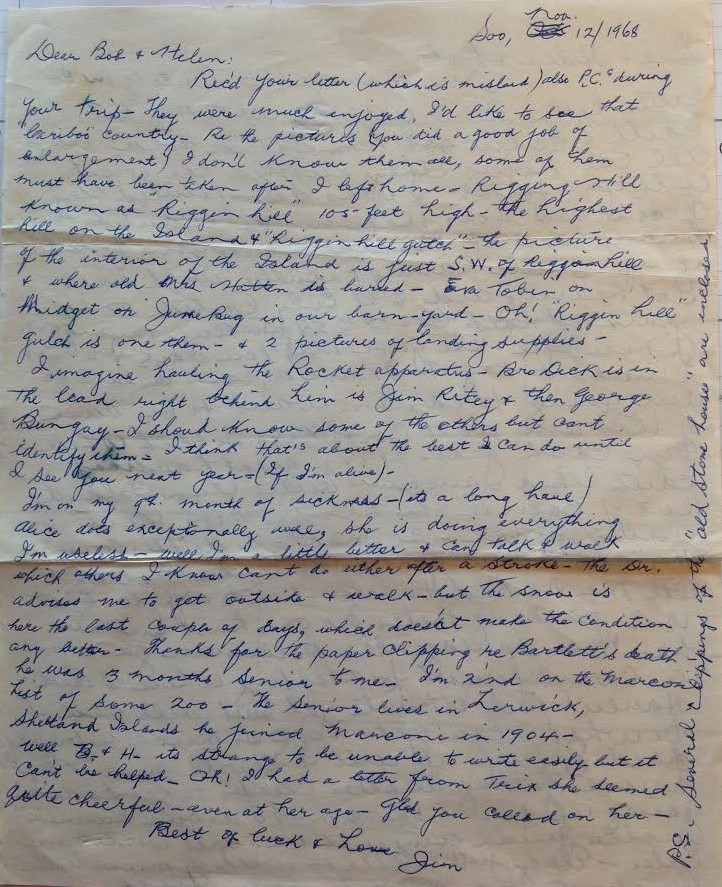 Soo, Nov. 12/1968
Dear Bob & Helen:
Rec'd your letter (which is mislaid) also P.C.s during
your trip - They were much enjoyed, I'd like to see that
Cariboo country - Re the pictures (you did a good job of
enlargement) I don't know them all, some of them
must have been taken after I left home - Rigging Hill
known as "Riggin hill" 105 feet high - the highest
hill on the Island & "Riggin hill gulch" - the picture
of the interior of the Island is just S.W. of Riggin hill
& where old Mrs Hatten is buried - Eva Tobin on
Midget or JuneBug in our barn-yard - Oh! "Riggin hill"
gulch is one them - & 2 pictures of landing supplies -
I imagine hauling the Rocket apparatus - Bro Dick is in
the lead right behind him is Jim Ritcy & then George
Bungay - I should know some of the others but cant
identify them = I think that's about the best I can do until
I see you next year = (If I'm alive) -
I'm on my 9th. month of sickness - (its a long haul)
Alice does exceptonally well, she is doing everything
I'm useless - well I'm a little better & can talk & walk
which others I know cant do either after a stroke - The Dr.
advises me to get outside & walk - but the snow is
here the last couple of days, which doesn't make the condition
any better - Thanks for the paper clipping re Bartlett's death
he was 3 months senior to me - I'm 2nd on the Marconi
list of some 200 - The senior lives in Lerwick,
Shetland Islands he joined Marconi in 1904 -
well B. & H - its strange to be unable to write easily but it
Can't be helped - Oh! I had a letter from Trix she seemed
quite cheerful - even at her age - Glad you called on her -
Best of luck & Love
Jim
P.S. - Several clippings of the "old stone house" are inclosed